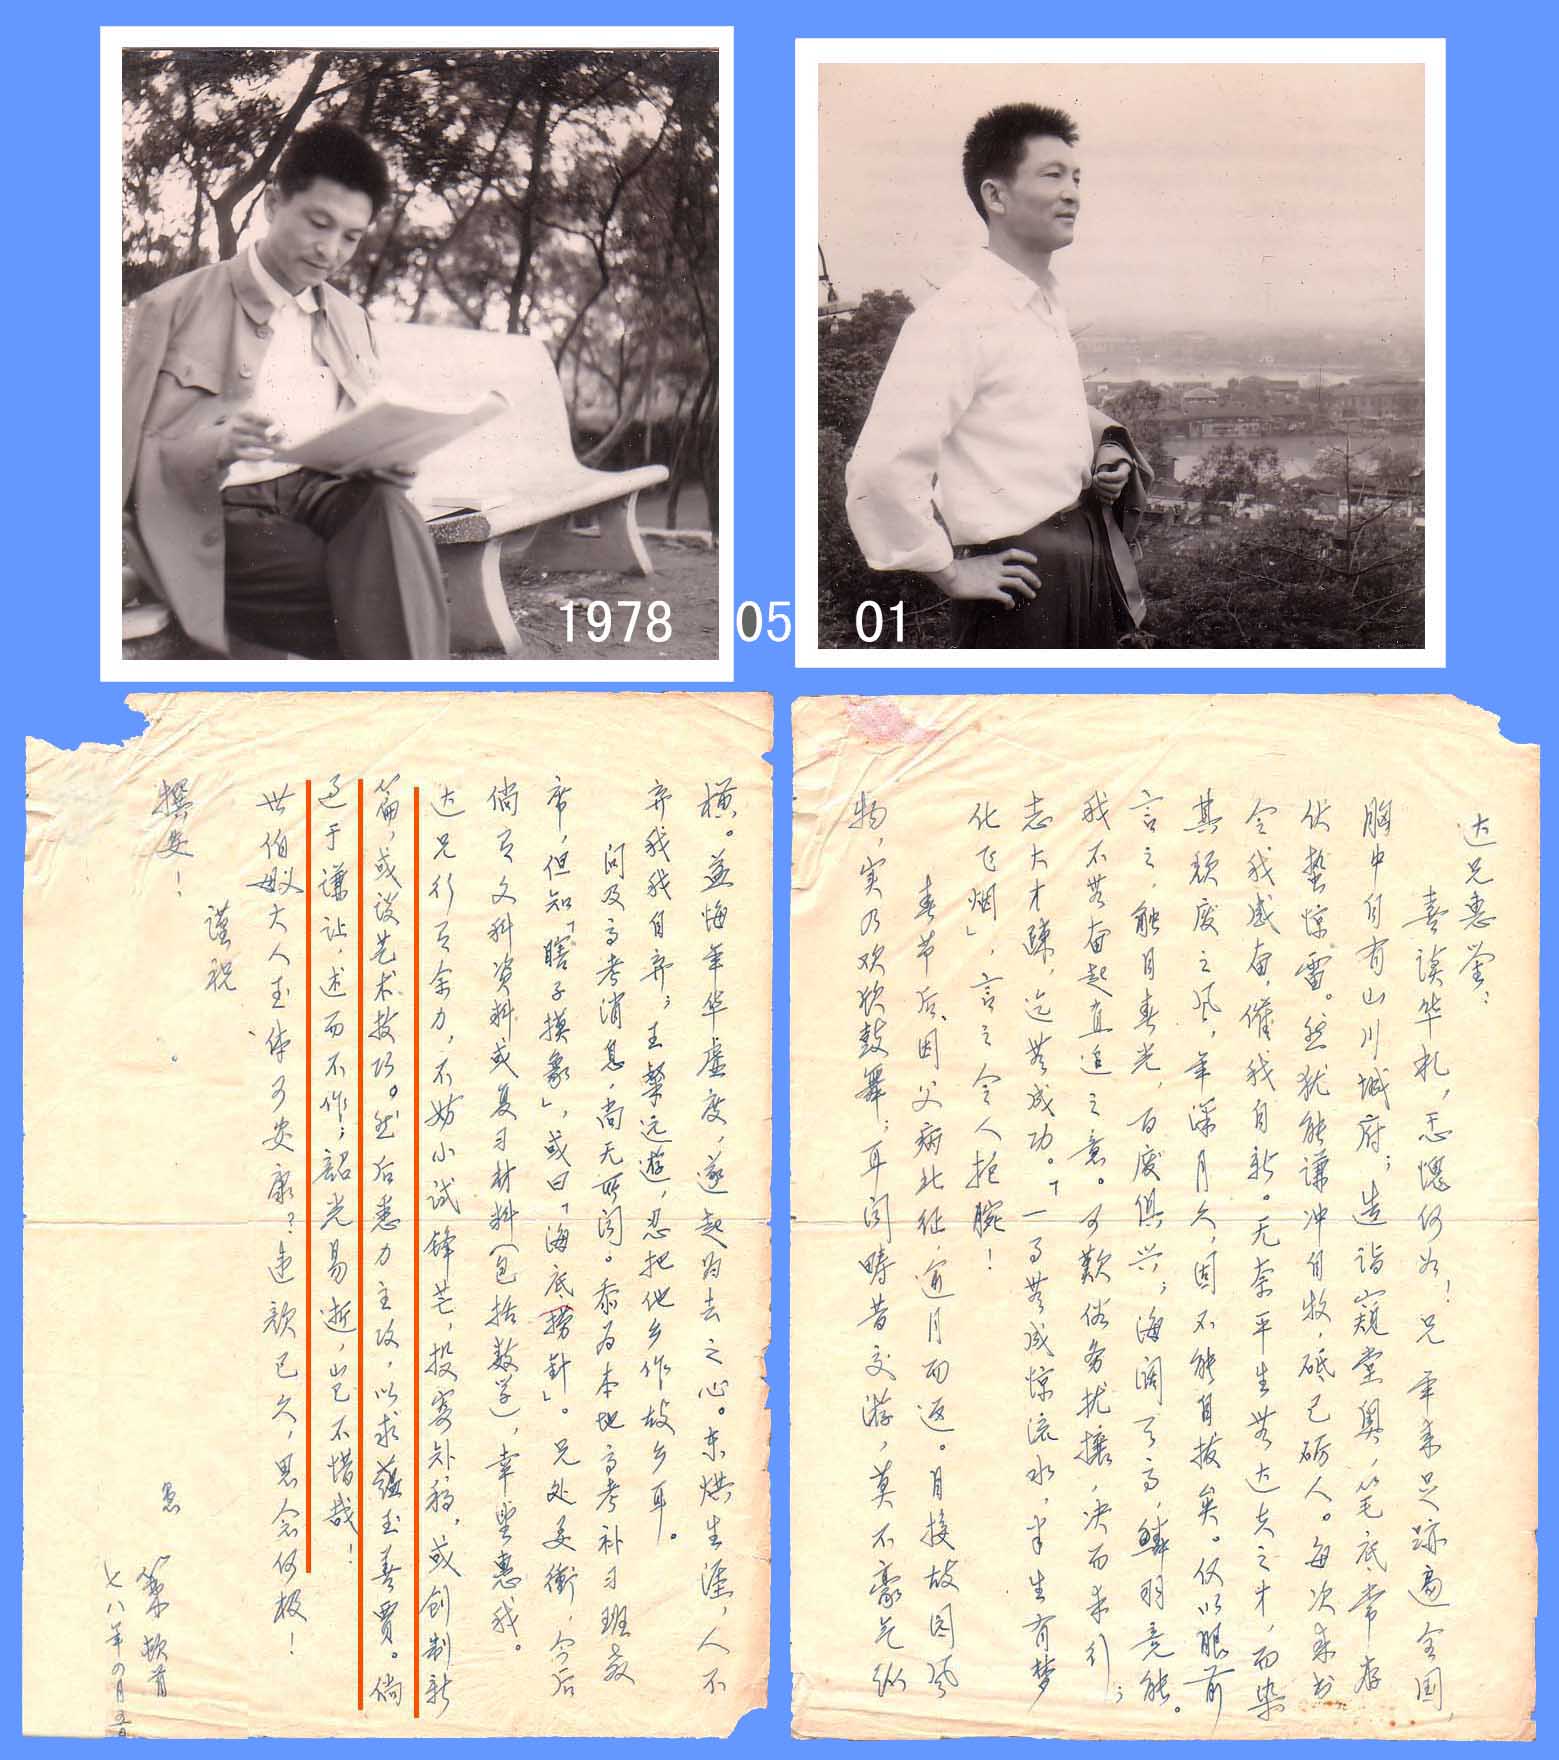 1978 05 01
达兄惠鉴：
喜读华札，恧愧何如！兄年来足迹遍全国，
胸中自有山川城府；造诣窥堂奥，笔底常存
伏蛰惊雷。然犹能谦冲自牧，砥己砺人。每次来书
令我感奋，催我自新。无奈平生无达夫之才，而染
其颓废之风，年深月久，固不能自拔矣。仅以眼前
言之，触目春光，百废俱兴；海阔天高，鳞羽竞能。
我不无奋起直追之意。可歎俗务扰攘，决而未行；
志大才疏，迄无成功。「一事无成惊流水，半生有梦
化飞烟」，言之令人扼腕！
春节后，因父病北征，逾月而返。目接故园风
物，实乃欢欣鼓舞；耳闻畴昔交游，莫不豪气纵
横。益悔年华虚度，遂起归去之心。东烘生涯，人不
弃我我自弃；远遊，忍把他乡作故乡耳。
问及高考消息，尚无所闻。忝为本地高考补习班教
席，但知「瞎子摸象」，或曰「海底捞针」。兄处要衝，今后
倘有文科资料或复习材料（包括数学），幸望惠我。
达兄行有余力，不妨小试锋芒，投寄外稿。或创制新
篇，或谈艺术技巧。然后悉力主攻，以求蕴玉善贾。倘
过于谦让，述而不作；韶光易逝，岂不惜哉！
世伯母大人玉体可安康？违款已久，思念何极！
谨祝
撰安！
愚
七八年四月五日